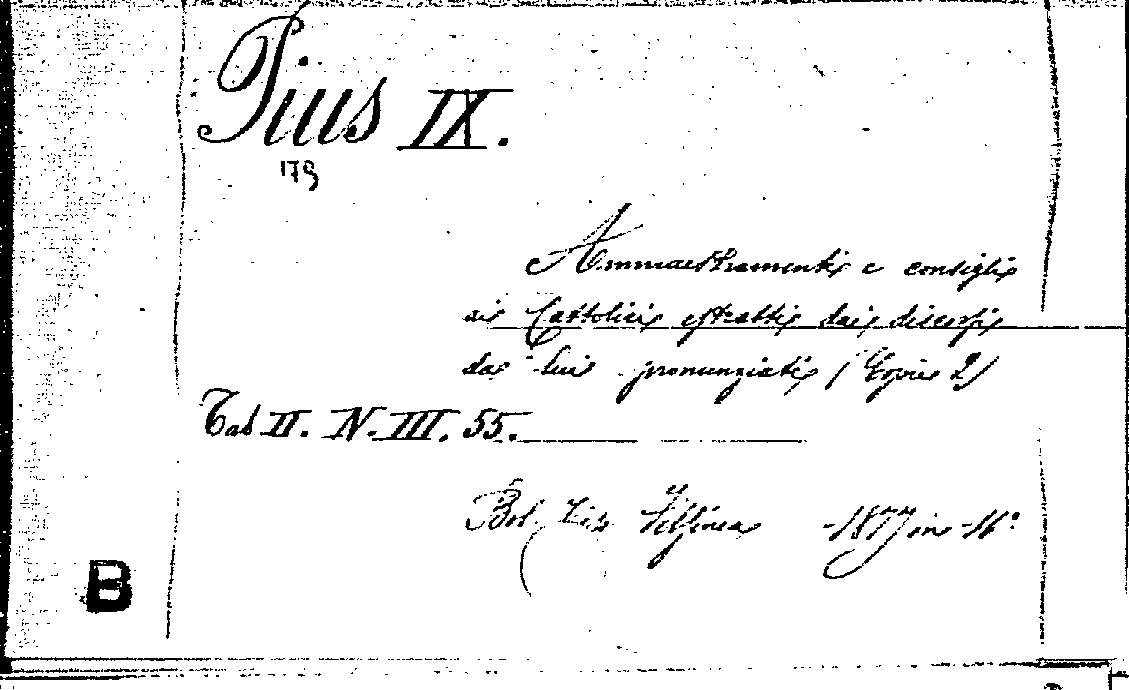 Pius IX.
179
Ammaestramenti e consigli
ai Cattolici estratti dai discorsi
da lui pronunziati (Copie 2)
Tab II. N. III. 55.
Bol. Tip. Felsinea 1877 in 16°
B